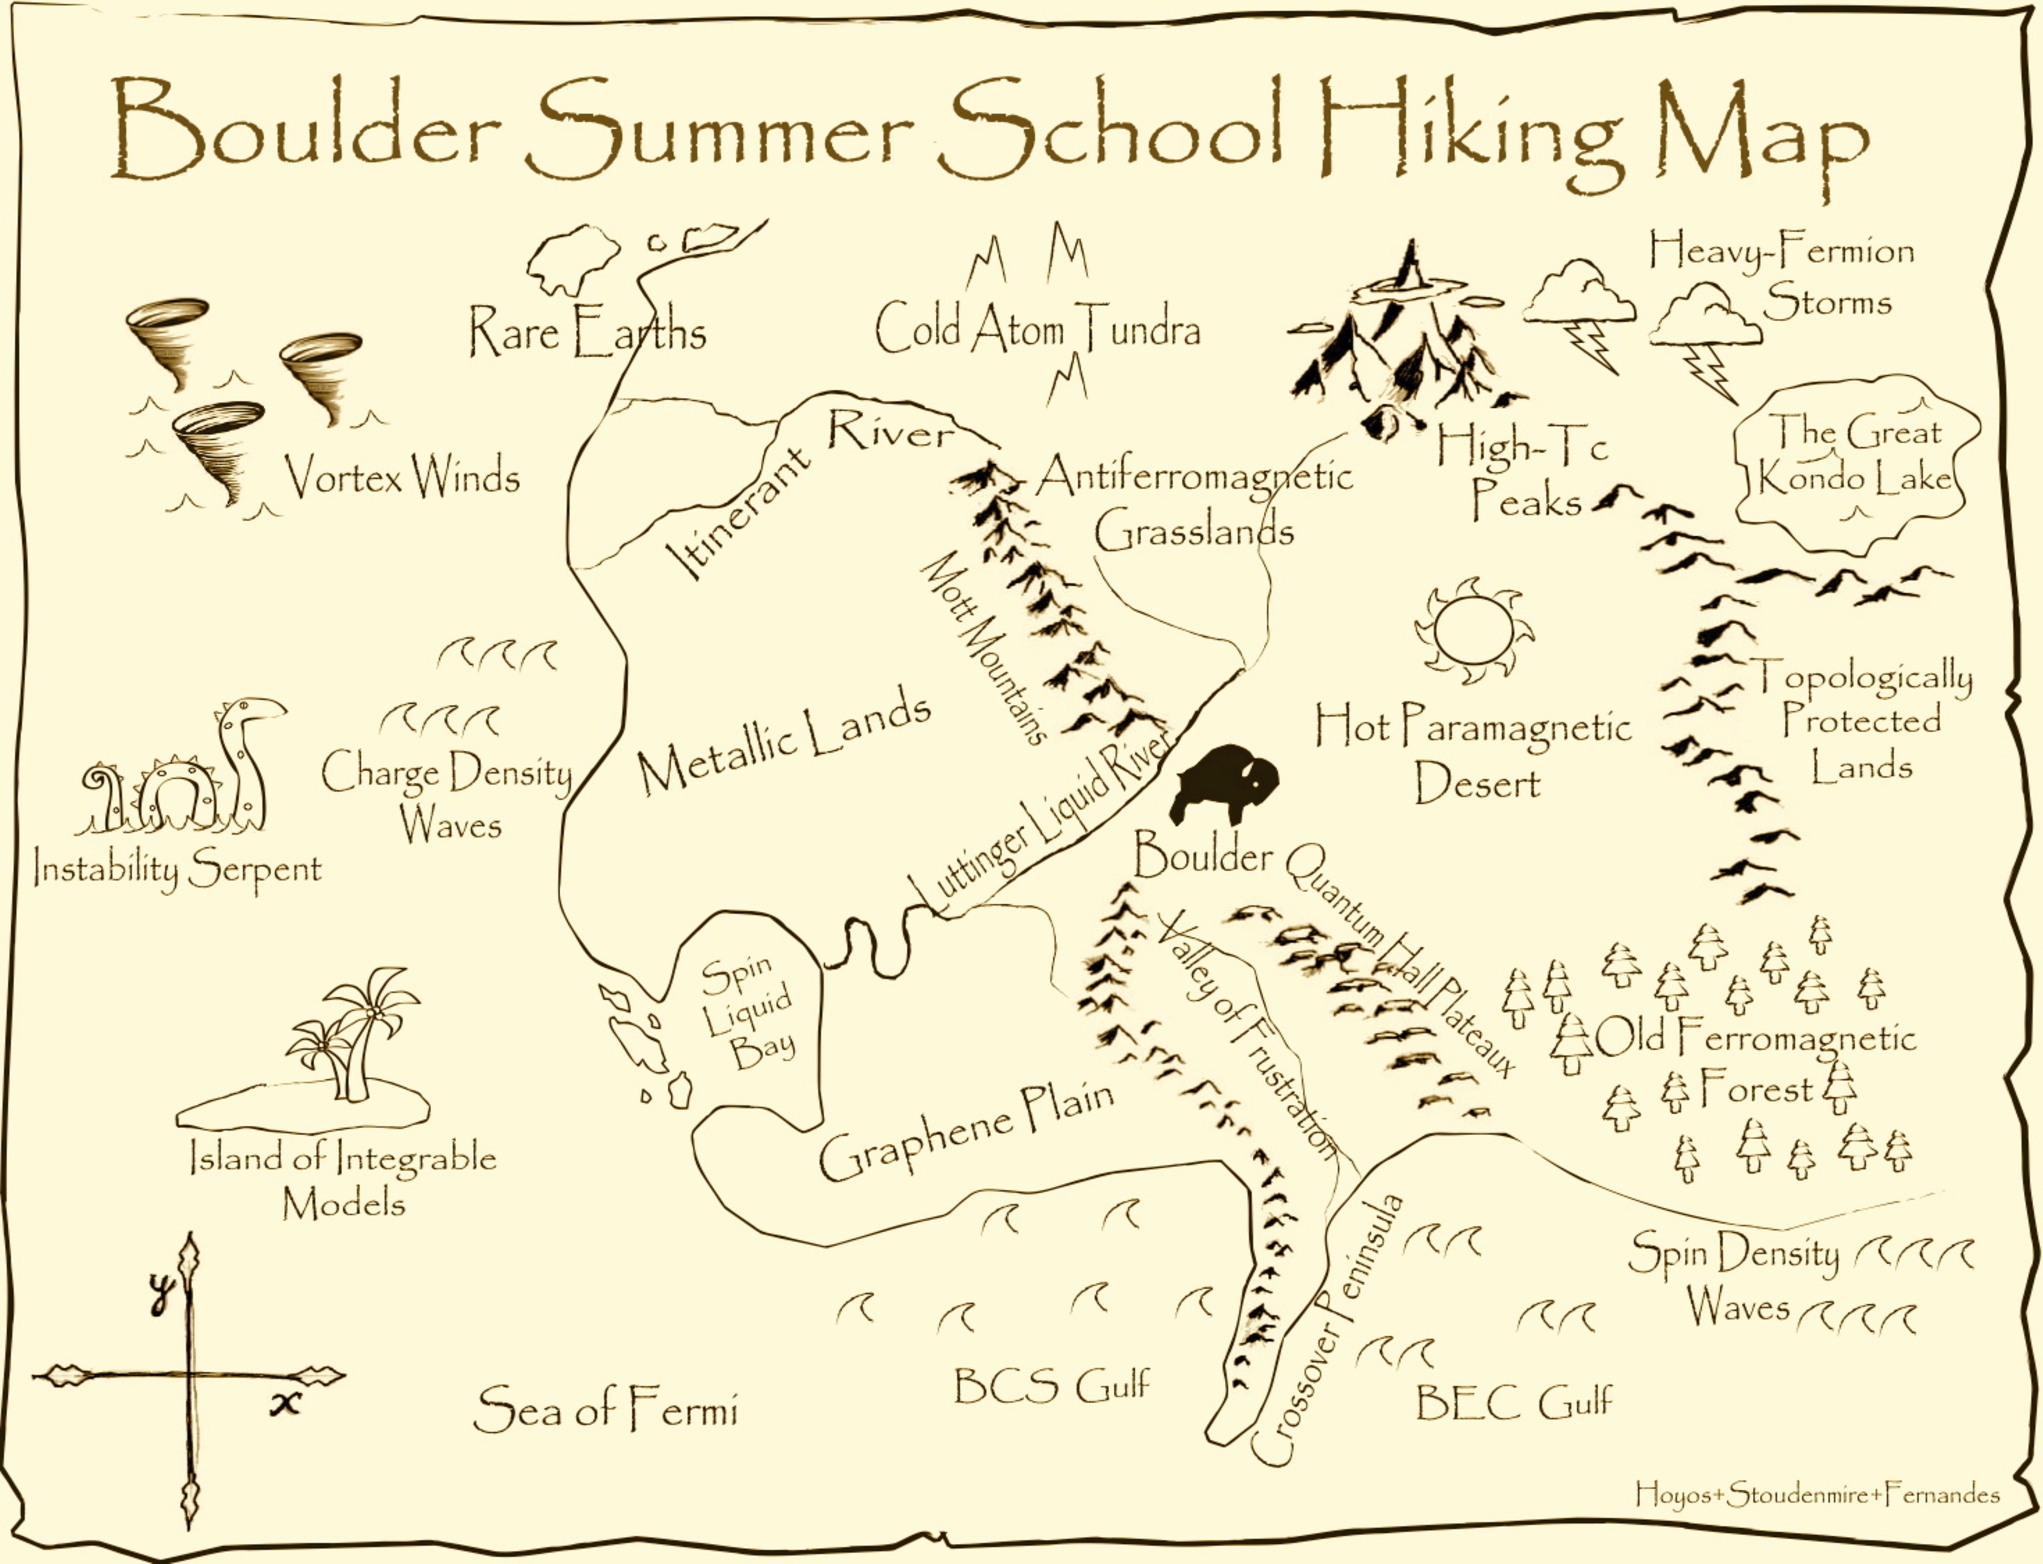 Boulder Summer School Hiking Map
Heavy-Fermion
Storms
Rare Earths
Cold Atom Tundra
The Great
Kondo Lake
Itinerant River
High-Tc
Peaks
Vortex Winds
Antiferromagnetic
Grasslands
Mott Mountains
Topologically
Protected
Lands
Metallic Lands
Hot Paramagnetic
Desert
Charge Density
Waves
Luttinger Liquid River
Instability Serpent
Boulder
Quantum Hall Plateaux
Valley of Frustration
Spin
Liquid
Bay
Old Ferromagnetic
Forest
Graphene Plain
Island of Integrable
Models
Crossover Peninsula
Spin Density
Waves
y
x
BCS Gulf
BEC Gulf
Sea of Fermi
Hoyos+Stoudenmire+Fernandes